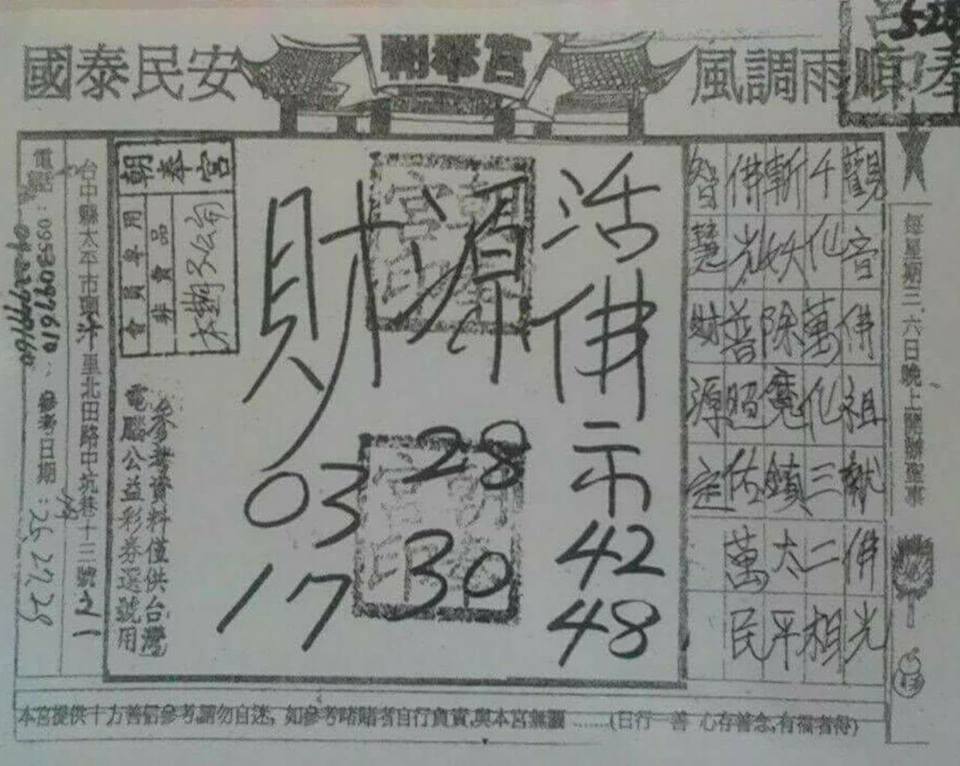 國泰民安
朝奉宮
風調雨順
5-25
每星期三、六日晚上開辦聖事
觀音佛祖執佛光
千化萬化三二相
斬妖除魔鎮太平
佛光普照佑萬民
智慧財源定
活佛示
42
48
財源
28
30
03
17
朝奉宮
會員專用
非賣品
參考資料僅供台灣
電腦公益彩券選號用
台中縣太平市 里北田路中坑巷十三號之一
參考日期：26 27 28
本宮提供十方善信參考,請勿自迷, 如參考賭賭者自行負責,與本宮無關 ……(日行一善 心存善念,有福者得)